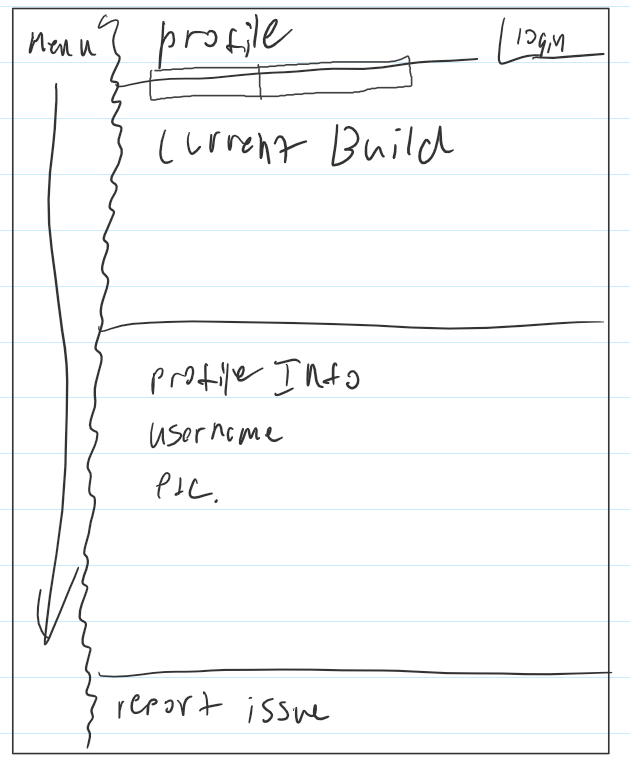 Menu
profile
login
Current Build
profile Info
username
PIC.
report issue